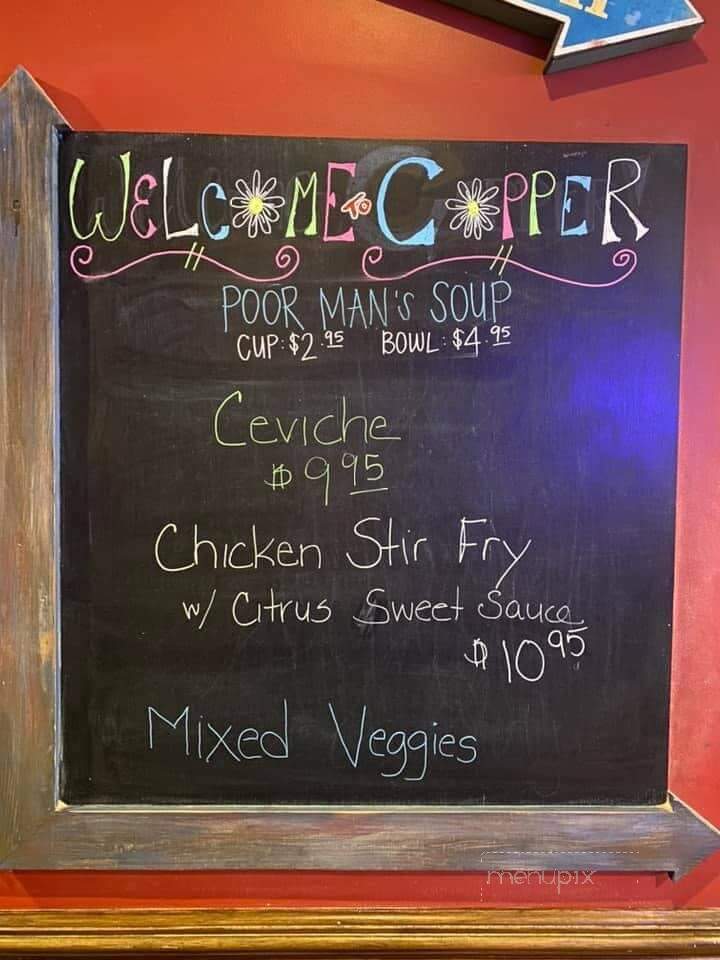 WELCOME TO COPPER
POOR MAN'S SOUP
CUP: $2.95 BOWL: $4.95
Ceviche
$9 95
Chicken Stir Fry
w/ Citrus Sweet Sauce
$10 95
Mixed Veggies
menupix